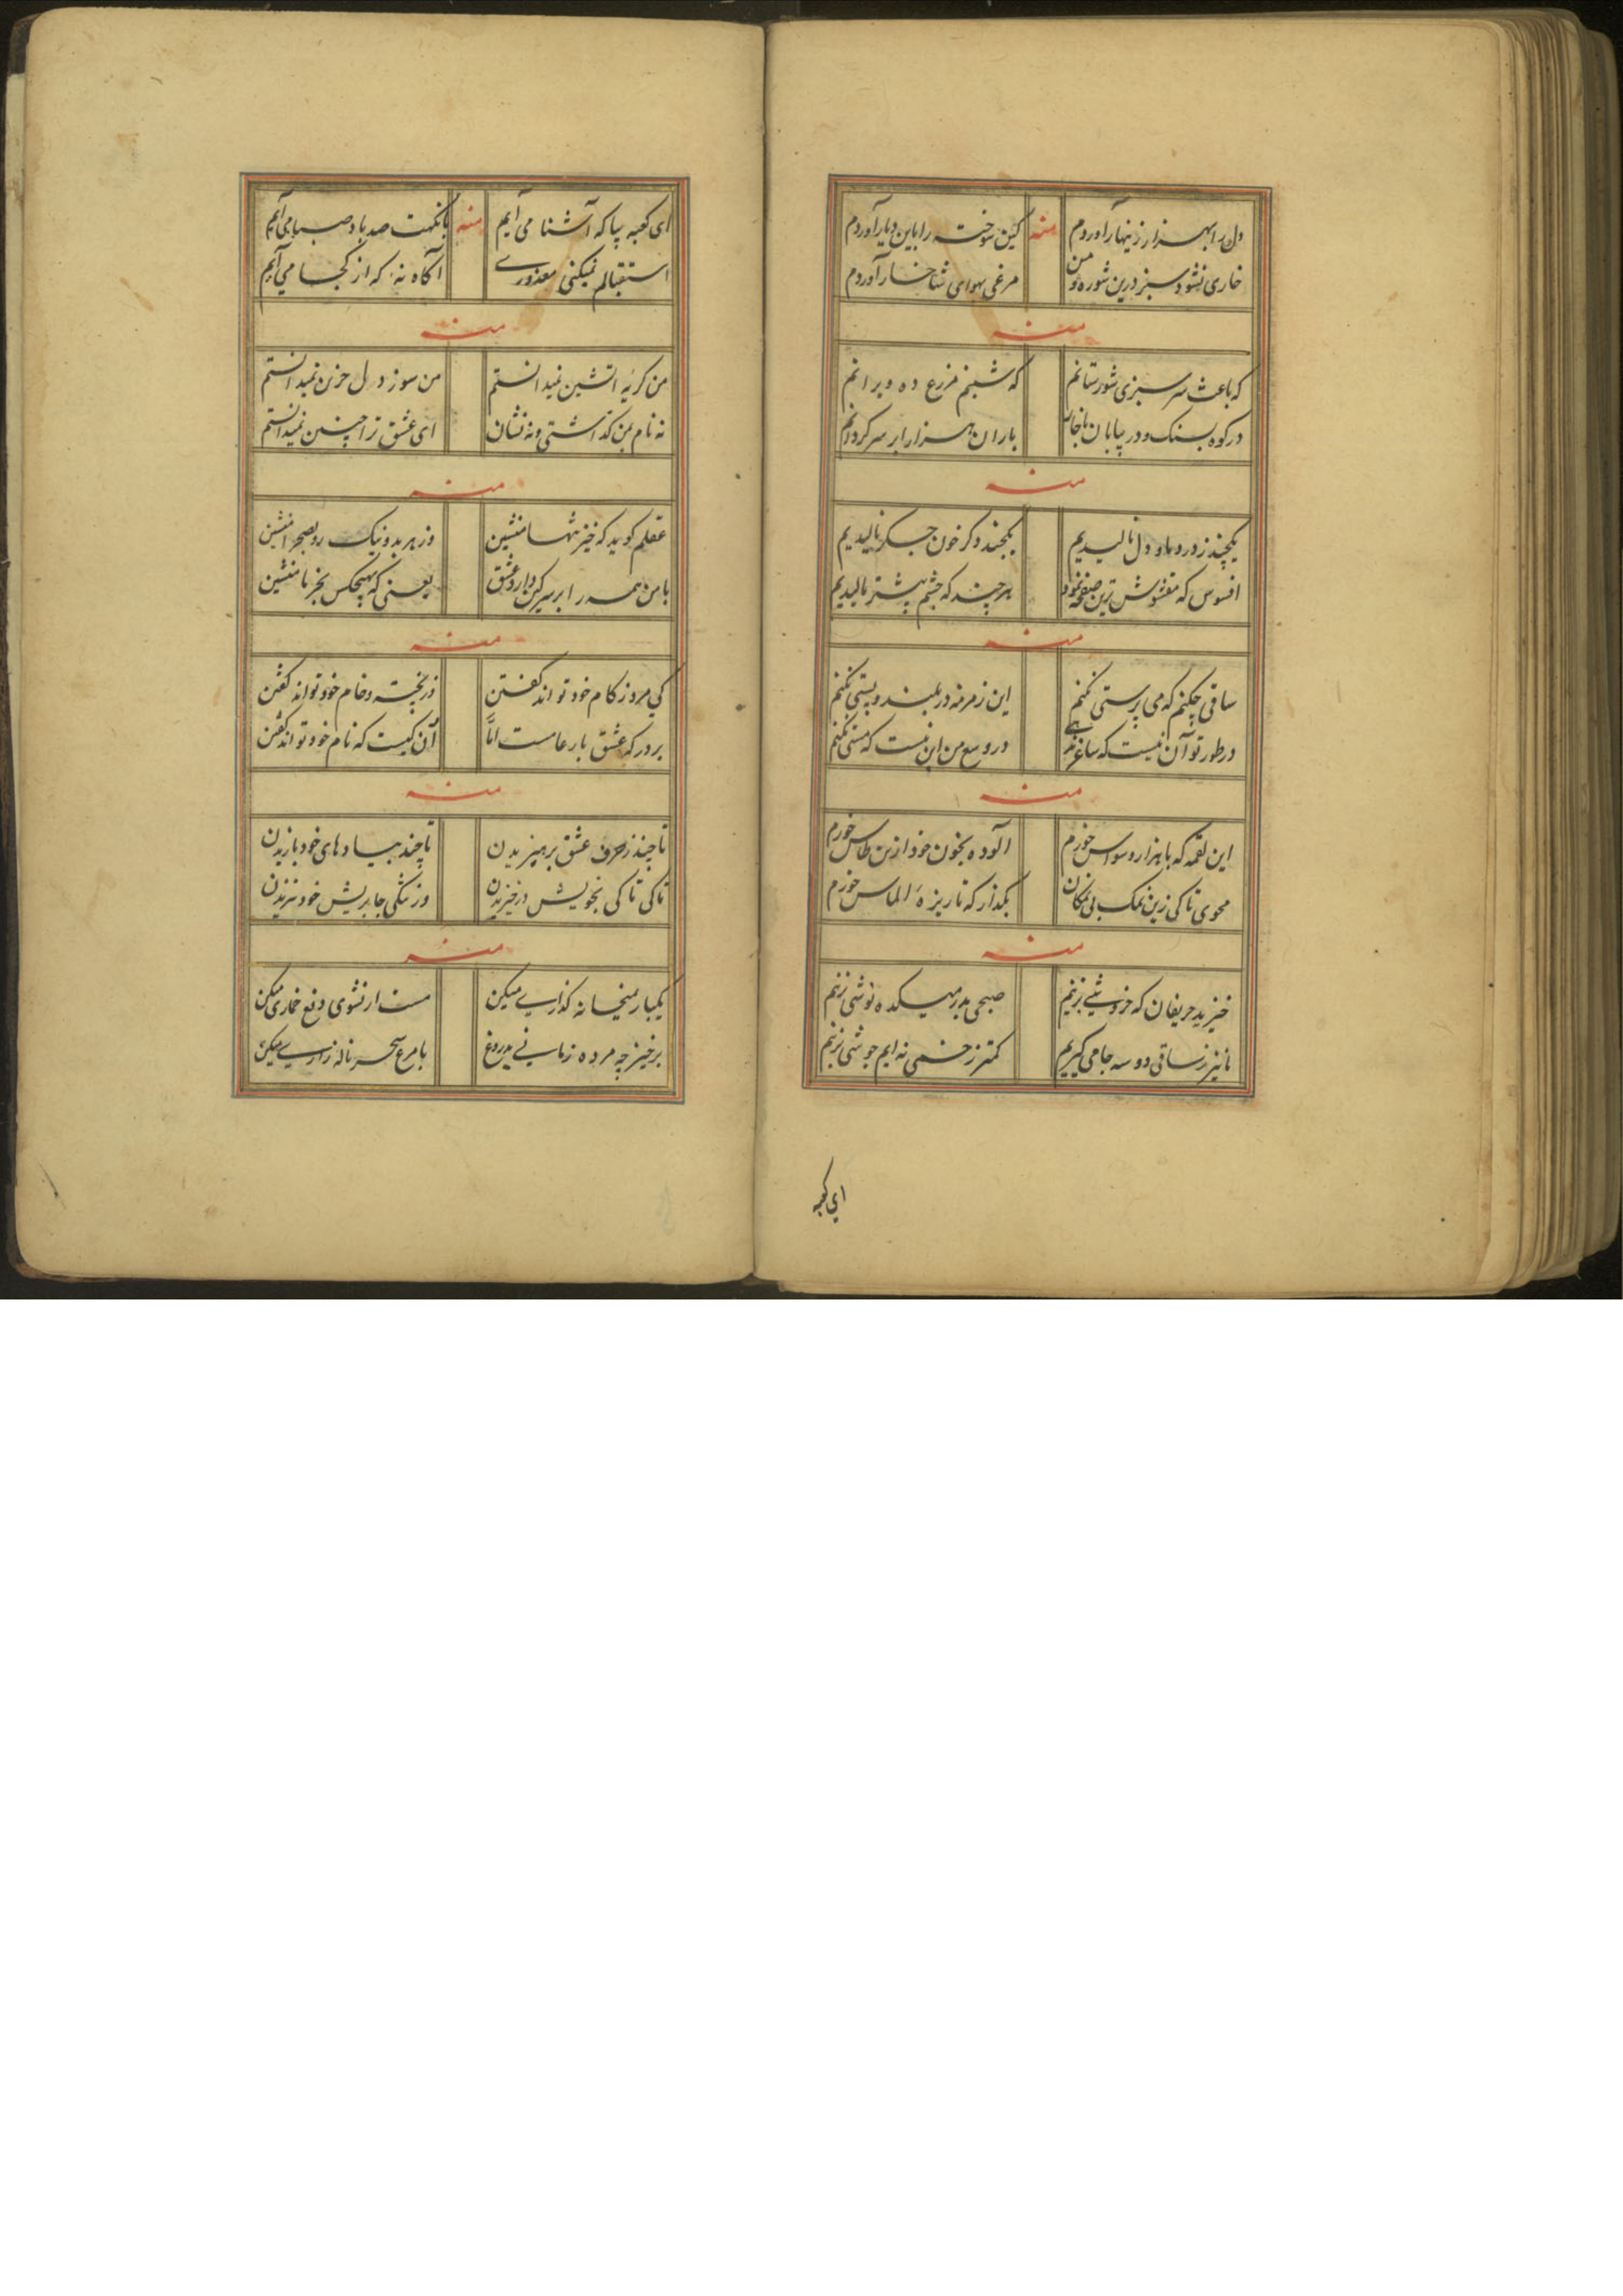 دل را بهزار زینهار آوردم منه کین سوخته را باین دیار آوردم
خاری نشود سبز درین شوره و من مرغی بهوای شاخسار آوردم
منه
که باعث سرسبزی شورستانم که شبنم مزرع ده ویرانم
در کوه بسنک و در بیابان باران هزار ابر سرکردانم
منه
یکچند ز درد دل نالیدیم یکچند دکر خون جکر پالیدیم
افسوس که مغشوش ترین صفحه نمود هرچند که چشم بیشتر مالیدیم
منه
ساقی چکنم که می پرستی نکنم این زمزمه در بلند و پستی نکنم
در طور تو آن نیست که ساغر ندهی در وسع من این نیست که مستی نکنم
منه
این لقمه که با هزار وسواس خورم آلوده بخون خود ازین طاس خورم
محوی تا کی زین نمک بی نمکان بکذار که تا ریزهٔ الماس خورم
منه
خیزید حریفان که خروشی بزنیم صبحی بدر میکده نوشی بزنیم
ما نیز ز ساقی دو سه جامی کیریم کمتر ز خمی نه ایم جوشی بزنیم
ای کعبه
ای کعبه بیا که آشنا می آیم منه با نکهت صد باد صبا می آیم
استقبالم نمیکنی معذوری آکاه نهٔ که از کجا می آیم
منه
من کریهٔ آتشین نمیدانستم من سوز دل حزین نمیدانستم
نه نام بمن کذاشتی و نه نشان ای عشق ترا چنین نمیدانستم
منه
عقلم کوید که خیز تنها منشین وز هر بد و نیک رو بصحرا منشین
با من همه را برسر کین دارد عشق یعنی که بهیچکس بجز ما منشین
منه
کی مرد ز کام خود تواند کفتن وز پخته و خام خود تواند کفتن
بر درکه عشق بار عامست امّا آن کیست که نام خود تواند کفتن
منه
تا چند ز حرف عشق پرهیزیدن تا چند بیادهای خود بازیدن
تا کی تا کی بخویش در خیزیدن وز تنکی جا بریش خود تیزیدن
منه
یکبار بمیخانه کذاری میکن مست ار نشوی دفع خماری میکن
برخیز چه مردهٔ زمانی بدروغ با مرغ سحر ناله زاری میکن